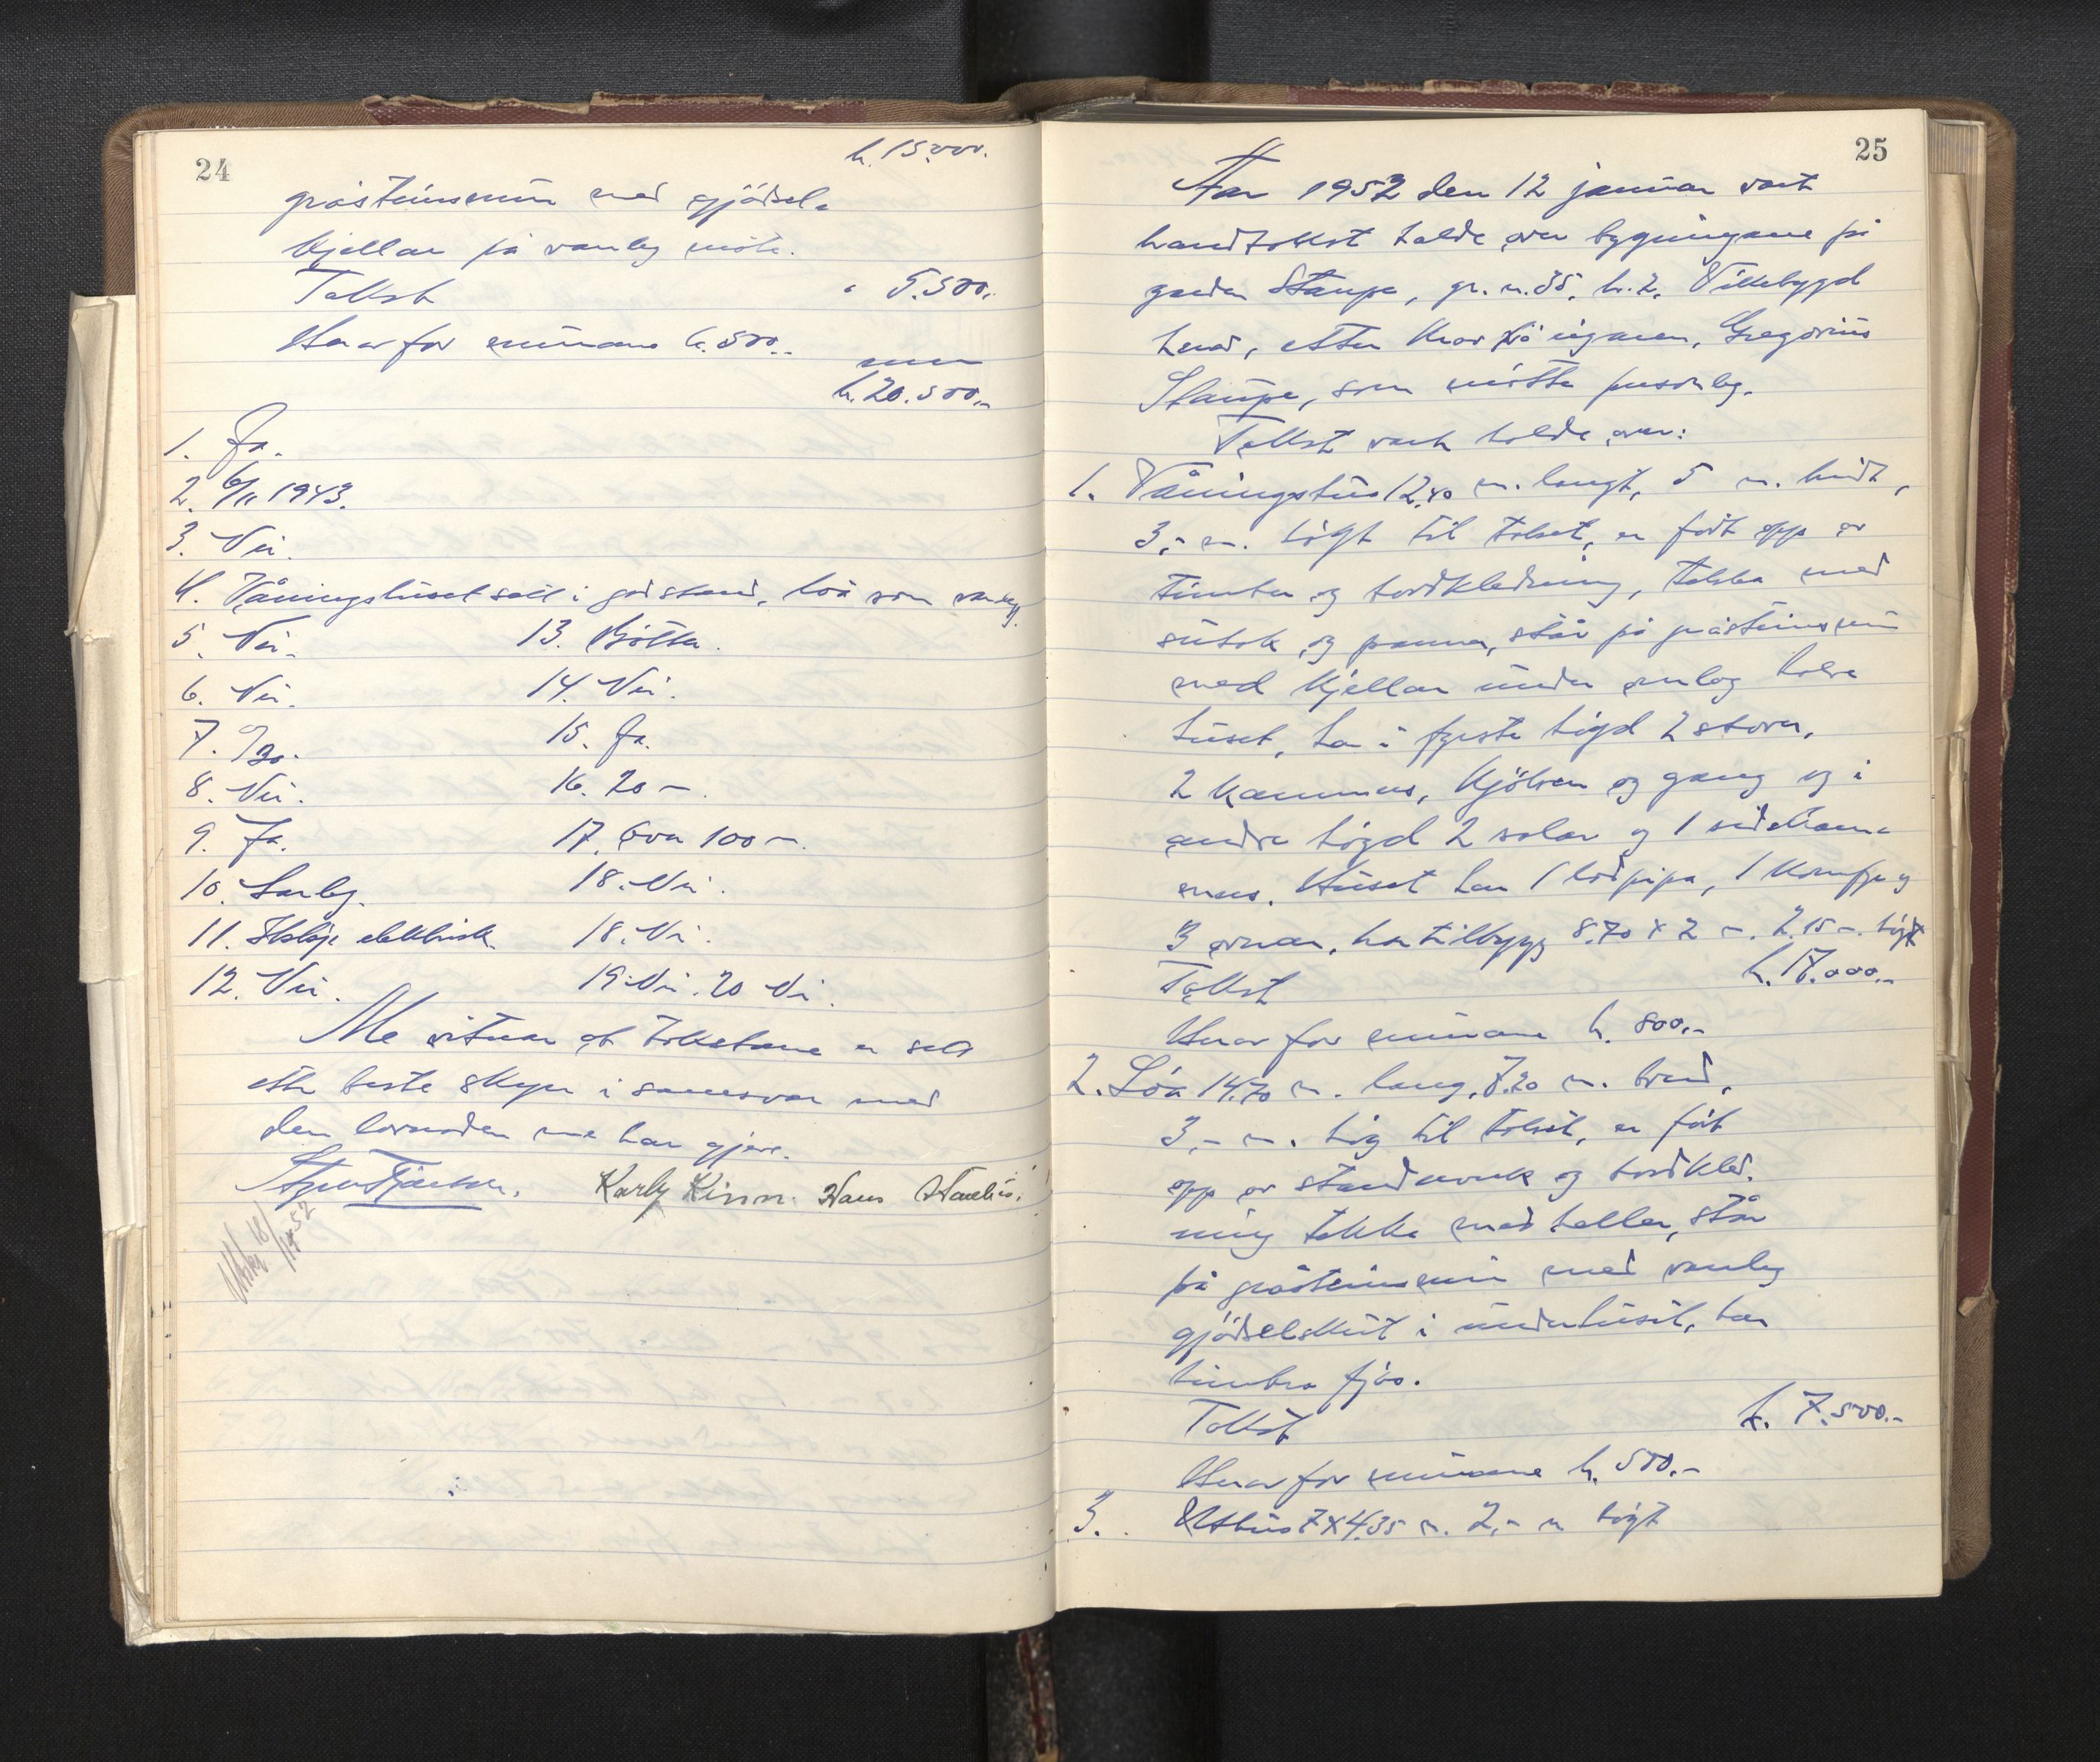 24
kr. 15.000.
gråsteinsmur med gjødsel-
kjellar på vanleg måte.
Takst " 5.500.-
Herav for murane kr. 500.-
kr. 20.500.-
1. Ja.
2. 6/11 1943.
3. Nei.
4. Våningshuset sett i god stand, løa som vanleg.
5. Nei. 13. Bøtta.
6. Nei. 14. Nei.
7. 1/30. 15. Ja.
8. Nei. 16. 20 m.
9. Ja. 17. Over 100 m.
10. Sarleg. 18. Nei.
11. elektrisk 18. Nei.
12. Nei. 19. Nei. 20 Nei.
Me vitnar at takstane er sett
etter beste skyn i samsvar med
den lovnaden me har gjeve.
Karly Kinn. Hans
Utskr. 18/1 1952
25
Aar 1952 den 12 januar vart
brandtakst halde over bygningane på
garden Staupe, gr. n. 35, br. 2, Vikebygd
herad, etter krav frå eigaren, Gregorius
Staupe, som møtte personleg.
Takst vart halde over:
1. Våningshus 12,40 m. langt, 5 m. breidt,
3,- m. høgt til taket, er ført opp av
timber og bordkledning, tekka med
sutak og panner, står på gråsteinsmur
med kjellar under omlag halve
huset, har i fyrste høgd 2 stover,
2 kammers, kjøken og gang og i
andre høgd 2 salar og 1 sidekam-
mers. Huset har 1 loddpipe, 1 komfyr og
3 omnar, har tilbygg 8.70 x 2 m. 2.15 m. høgt
Takst kr. 17.000.-
Herav for murane kr. 800.-
2. Løa 14.70 m. lang, 7.20 m. breid,
3,- m. høg til taket, er ført
opp av standverk og bordkled-
ning tekka med heller, står
på gråsteinsmur med vanleg
gjødselskut i underhuset, har
timbra fjøs.
Takst kr. 7.500.-
Herav for murane kr. 500.-
3. Uthus 7 x 4.35 m. 2,- m høgt